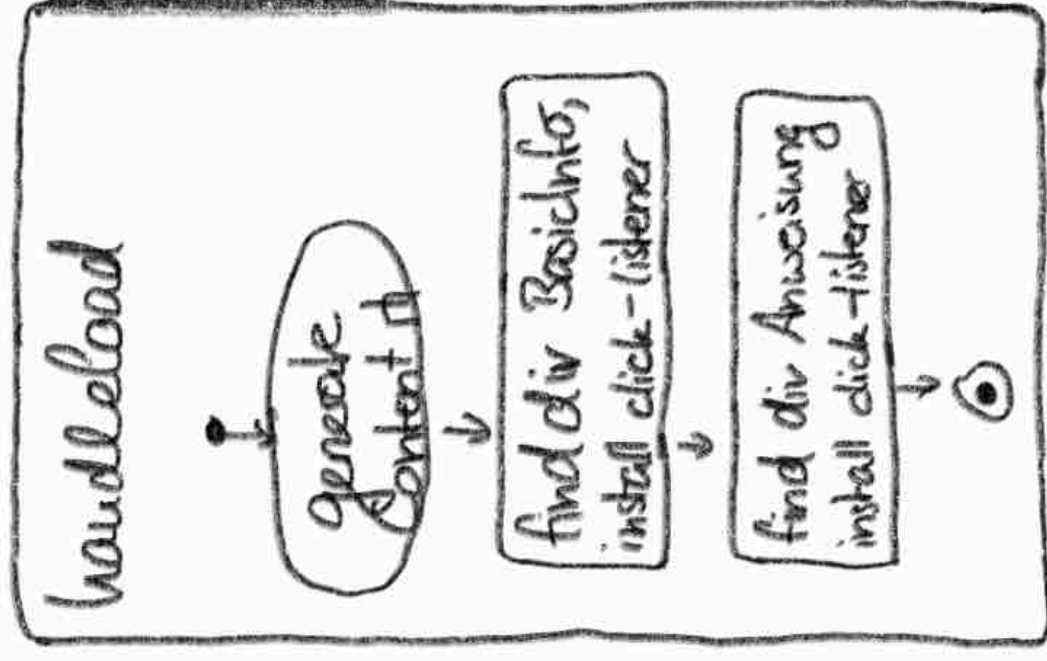 handleload
generate
Content
find div BasicInfo,
install click-listener
find div Anweisung
install click-listener